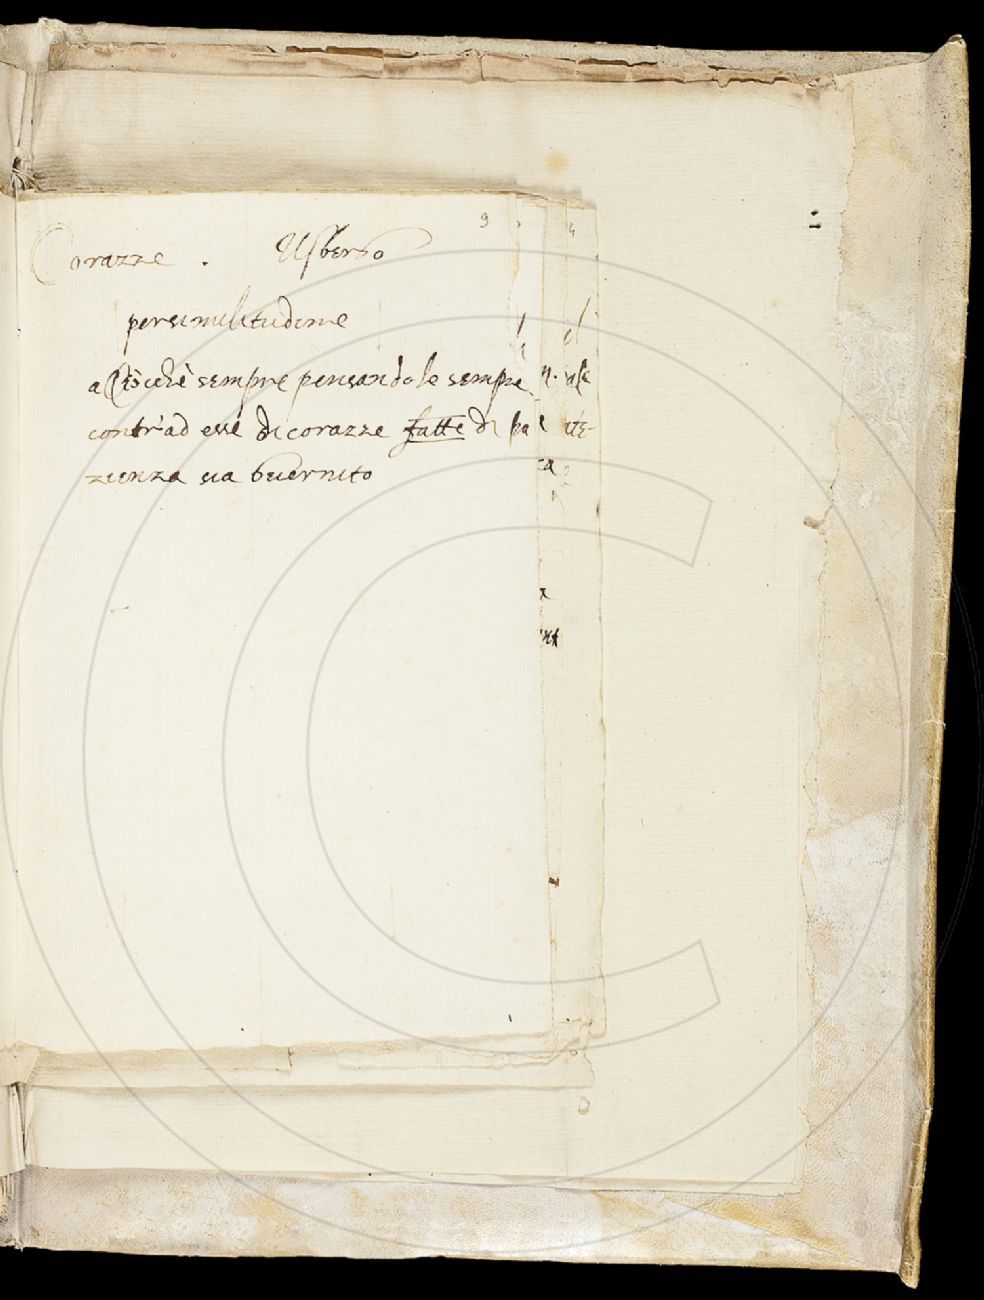 9
Corazze . Usbergo
per similitudine
acciocchè sempre pensandole sempre
contr'ad esse di corazze fatte di pa
zienza sia guernito